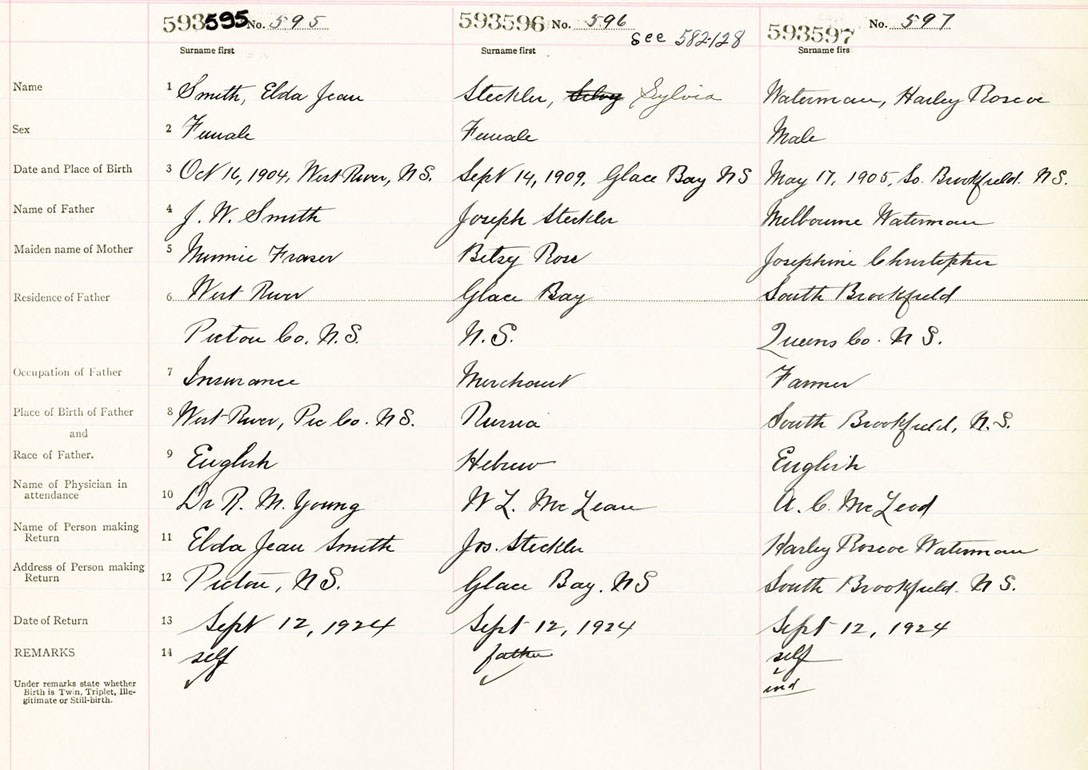 593595 No. 595 593596 No. 596 593597 No. 597
see 582-128
Surname first Surname first Surname firs
Name 1 Smith, Elda Jean Steckler, Sylvia Waterman, Harley Roscoe
Sex 2 Female Female Male
Date and Place of Birth 3 Oct 16, 1904, West River, N.S. Sept 14, 1909, Glace Bay NS May 17, 1905, So. Brookfield. N.S.
Name of Father 4 J. W. Smith Joseph Steckler Melbourne Waterman
Maiden name of Mother 5 Minnie Fraser Betsy Rose Josephine Christopher
Residence of Father 6 West River Glace Bay South Brookfield
Pictou Co. N.S. N.S. Queens Co. N S.
Occupation of Father 7 Insurance Merchant Farmer
Place of Birth of Father 8 West River, Pic Co. N.S. Russia South Brookfield, N.S.
and
Race of Father. 9 English Hebrew English
Name of Physician in
attendance 10 Dr R. M. Young W L. McLean A. C. McLeod
Name of Person making
Return 11 Elda Jean Smith Jos. Steckler Harley Roscoe Waterman
Address of Person making
Return 12 Pictou, N.S. Glace Bay. NS South Brookfield. N S.
Date of Return 13 Sept 12, 1924 Sept 12, 1924 Sept 12, 1924
REMARKS 14 self father self
Under remarks state whether
Birth is Twin, Triplet, Ille-
gitimate or Still-birth.
ind